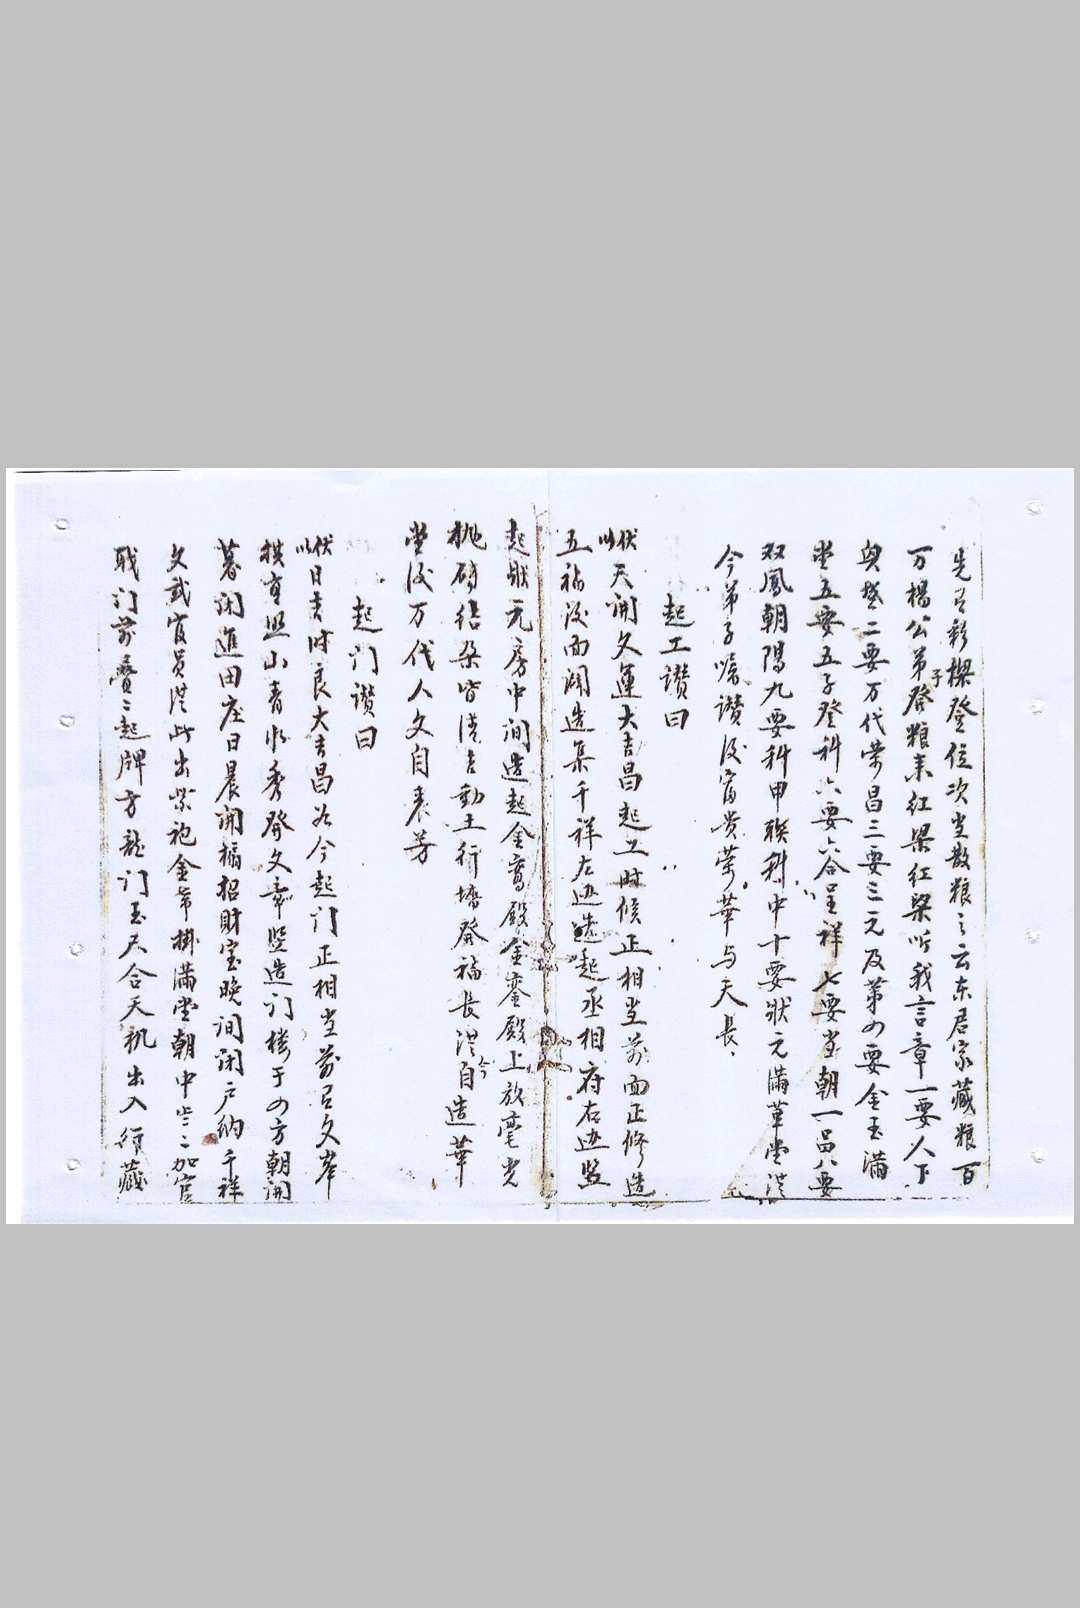 先呂彩樑登位次坐散粮之云东君家藏粮百
万楊公弟子登粮来红梁红梁听我言章一要人下
與楚二要万代荣昌三要三元及第四要金玉滿
堂五要五子登科六要六合呈祥七要當朝一品八要
双鳳朝陽九要科甲聯科中十要狀元滿華堂從
今弟子嘱讚后富贵荣華与天長
起工讚曰
伏以天開文運大吉昌起工时候正相当前面正修造
五福后面闊造集千祥左边造起丞相府右边竪
起狀元房中间造起金鸾殿金鸾殿上放毫光
桃符结朵皆清吉動土行墙發福長從今自造華
堂后万代人文自表芳
起门讚曰
伏以日吉时良大吉昌为今起门正相当前呂文峯
拱直照山青水秀發文章竪造门楼于四方朝開
暮闭進田庄日晨開福招財宝晚间闭户纳千祥
文武官員從此出紫袍金帶掛滿堂朝中步二加官
职门前叠二起牌方龍门玉尺合天机出入行藏